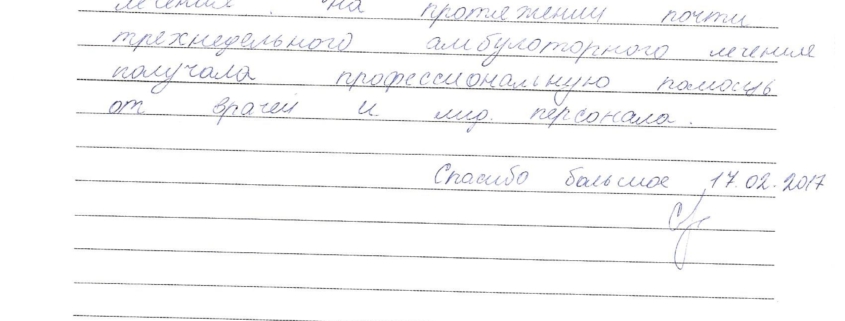 лечения. на протяжении почти
трехнедельного амбулоторного лечения
получала профессиональную помощь
от врачей и мед. персонала.
Спасибо большое 17.02.2017